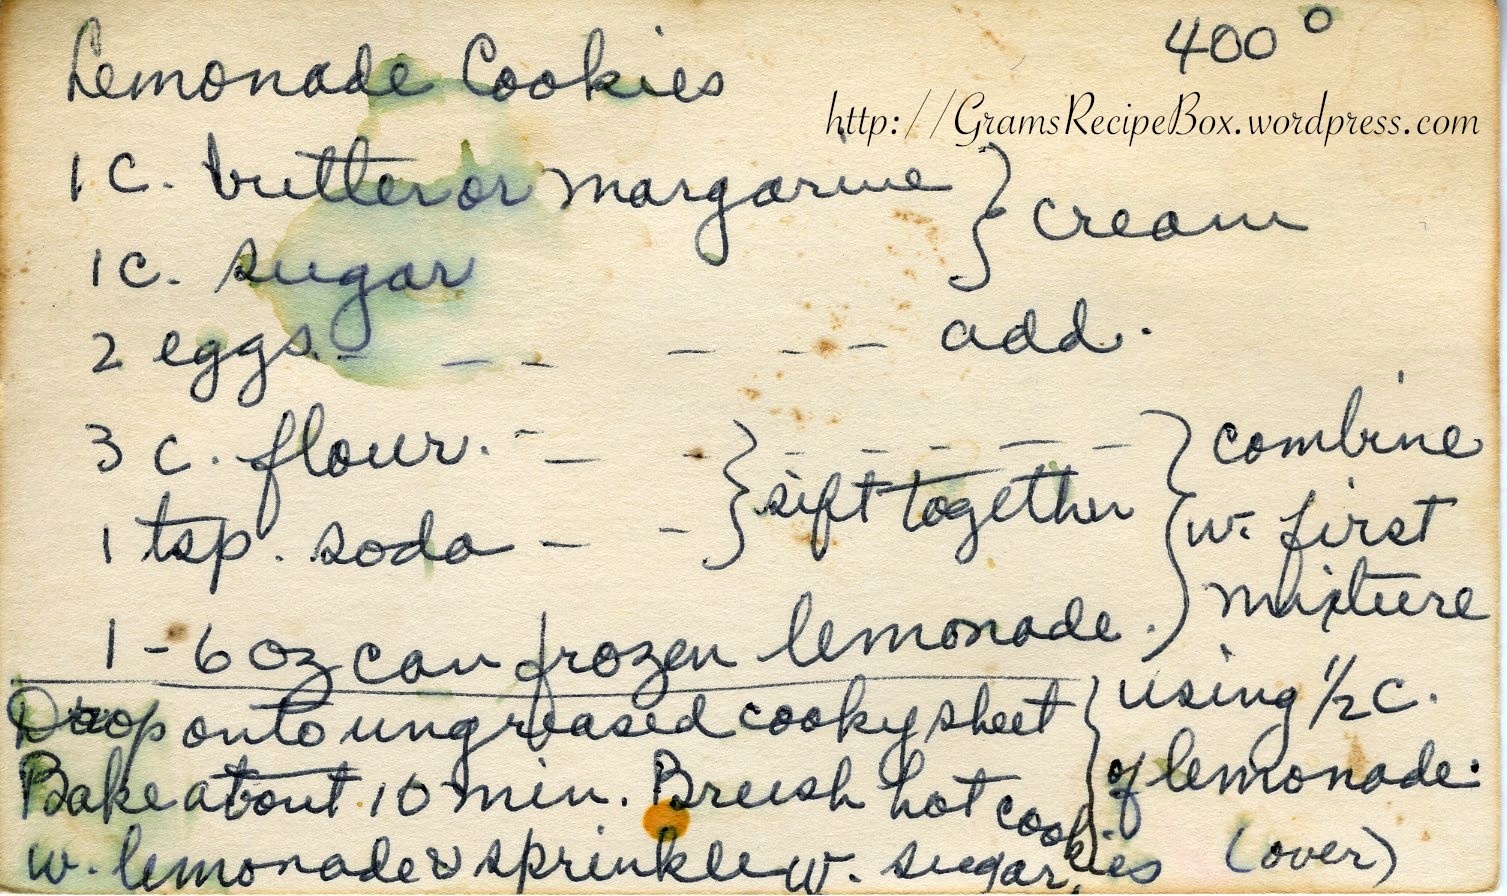 Lemonade Cookies 400°
http://GramsRecipeBox.wordpress.com
1 C. butter or margarine } cream
1 C. sugar
2 eggs. - - - - - - add.
3 c. flour. - - - } - - - - - } combine
1 tsp. soda - - } sift together w. first
mixture
1 - 6 oz can frozen lemonade.
using 1/2 C.
of lemonade.
Drop onto ungreased cooky sheet
Bake about 10 min. Brush hot cookies
w. lemonade & sprinkle w. sugar.
(over)